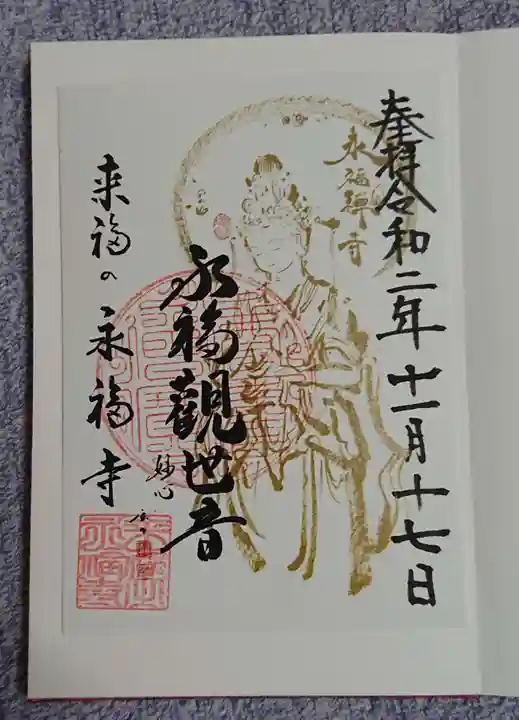 奉拝令和二年十一月十七日
永福禅寺
永福觀世音
妙心
来福の永福寺